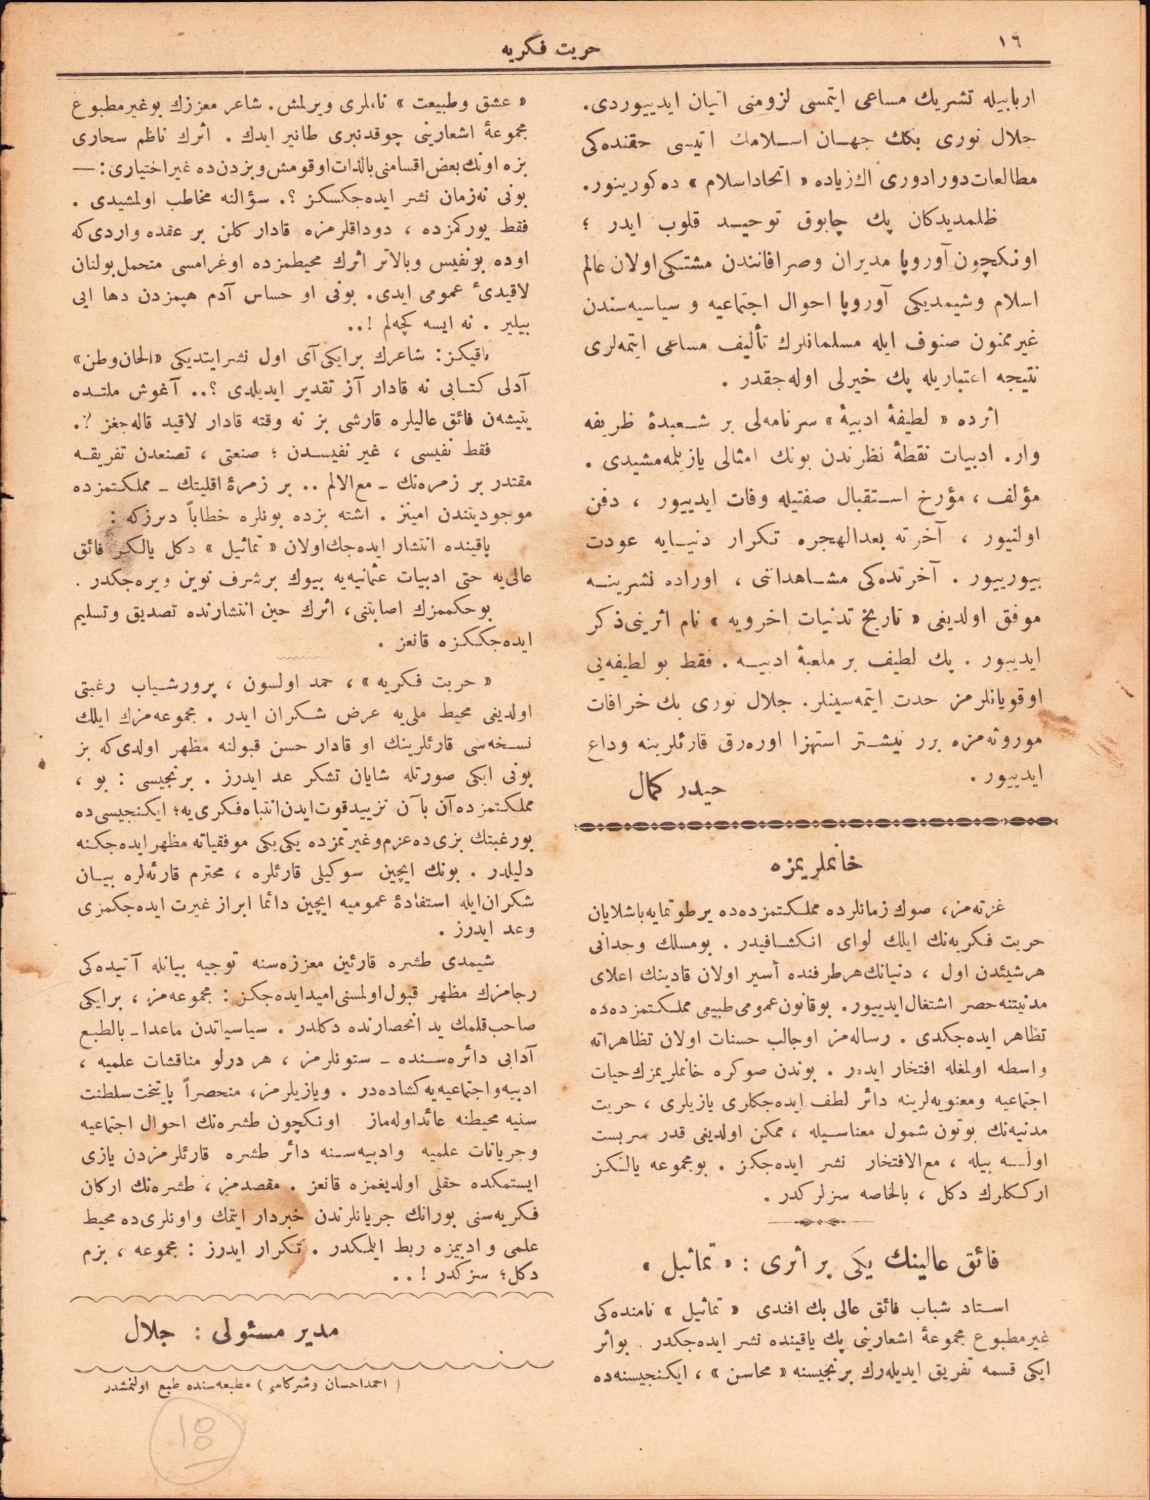 ١٦
حریت فكریه
اربابیله تشریك مساعی ایتمسی لزومنی اتیان ایدییوردی.
جلال نوری بكك جهـان اسـلامك اتیسی حقنده‌كی
مطالعات دورادوری اك زیاده « اتحاد اسلام » ده كورینور.
ظلمدیدكان پك چابوق توحیـد قلوب ایدر ؛
اونكچون آوروپا مدیران وصرافانندن مشتكی اولان عالم
اسلام وشیمدیكی آوروپا احوال اجتماعیه و سیاسیه‌سندن
غیرممنون صنوف ایله مسلمانلرك تألیف مساعی ایتمه‌لری
نتیجه اعتباریله پك خیرلی اوله‌جقدر .
اثرده « لطیفۀ ادبیۀ » سرنامه‌لی بر شـعبدۀ ظریفه
وار. ادبیات نقطۀ نظرندن بونك امثالی یازیلمه‌مشیدی .
مؤلف ، مؤرخ اسـتقبال صفتیله وفات ایدییور ، دفن
اولنیور ، آخرته بعدالهجره تكرار دنیـایه عودت
بیورییور . آخرتده‌كی مشـاهداتنی ، اوراده نشرینـه
موفق اولدیغی « تاریخ تدنیات اخرویه » نام اثرینی ذكر
ایدییور . پك لطیف بر ملعبۀ ادبیـه . فقط بو لطیفه‌یی
اوقویانلرمز حدت ایتمه‌سینلر. جلال نوری بك خرافات
موروثه‌مزه برر نیشـتر استهزا اوره‌رق قارئلرینه وداع
ایدییور .
حیدر كمال
خانملریمزه
غزته‌مز، صوك زمانلرده مملكتمزده‌ده یر طوتمایه باشلایان
حریت فكریه‌نك ایلك لوای انكشـافیدر . بومسلك وجدانی
هرشیئدن اول ، دنیانك هرطرفنده أسیر اولان قادینك اعلای
مدنیتنه حصر اشتغال ایدییور. بوقانون عمومی طبیعی مملكتمزده‌ده
تظاهر ایده‌جكدی . رساله‌مز اوجالب حسنات اولان تظاهراته
واسطه اولمغله افتخار ایدر . بوندن صوكره خانملریمزك حیات
اجتماعیه ومعنویه‌لرینه دائر لطف ایده‌جكلری یازیلری ، حریت
مدنیه‌نك بوتون شمول معناسـیله ، ممكن اولدیغی قدر سربست
اولـه بیله ، مع‌الافتخار نشر ایده‌جكز . بومجموعه یالـكز
اركـكلرك دكل ، بالخاصه سزلركدر .
فائق عالینك یكی بر اثری : « تماثیل »
اسـتاد شباب فائق عالی بك افندی « تماثیل » نامنده‌كی
غیرمطبوع مجموعۀ اشعارینی پك یاقینده نشر ایده‌جكدر . بواثر
ایكی قسمه تفریق ایدیله‌رك برنجیسنه « محاسن » ، ایكنجیسنه‌ده
« عشق وطبیعت » ناملری ویرلمش. شاعر معززك بوغیرمطبوع
مجموعۀ اشعارینی چوقدنبری طانیر ایدك . اثرك ناظم سحاری
بزه اونك بعض اقسامنی بالذات اوقومش وبزدن ده غیراختیاری : —
بونی نه‌زمان نشر ایده‌جكسكز ؟. سؤالنه مخاطب اولمشیدی .
فقط یوركمزده ، دوداقلرمزه قادار كلن بر عقده واردی‌كه
اوده بونفیس وبالاتر اثرك محیطمزده اوغرامسی متحمل بولنان
لاقیدیٔ عمومی ایدی. بونی او حساس آدم هپمزدن دها ایی
بیلیر . نه ایسه كچه‌لم !..
باقیكز: شاعرك برایكی آی اول نشرایتدیكی «الحان وطن»
آدلی كتـابی نه قادار آز تقدیر ایدیلدی ؟.. آغوش ملتـده
یتیشه‌ن فائق عالیلره قارشی بز نه وقته قادار لاقید قاله‌جغز ؟.
فقط نفیسی ، غیر نفیسـدن ؛ صنعتی ، تصنعدن تفریقـه
مقتدر بر زمره‌نك ـ مع‌الالم .. بر زمرۀ اقلیتك ـ مملكتمزده
موجودیتندن امینز . اشته بزده بونلره خطاباً دیرزكه :
یاقینده انتشار ایده‌جك‌اولان « تماثیل » دكل یالكز فائق
عالی‌یه حتی ادبیات عثمانیه‌یه بیوك برشرف نوین ویره‌جكدر .
بوحكممزك اصابتنی، اثرك حین انتشارنده تصدیق وتسلیم
ایده‌جككزه قانعز .
« حریت فكریه » ، حمد اولسون ، پرورشـیاب رغبتی
اولدیغی محیط ملی‌یه عرض شـكران ایدر . مجموعه‌مزك ایلك
نسـخه‌سی قارئلرینك او قادار حسن قبولنه مظهر اولدی‌كه بز
بونی ایكی صورتله شایان تشكر عد ایدرز . برنجیسی : بو ،
مملكتمزده آن بآن تزییدقوت ایدن انتباه فكری‌یه؛ ایكنجیسی ده
بورغبتك بزی ده عزم وغیرتمزده یكی یكی موفقیاته مظهر ایده‌جكنه
دلیلدر . بونك ایچین سوكیلی قارئلره ، محترم قارئه‌لره بیـان
شكران ایله استفادۀ عمومیه ایچین دائما ابراز غیرت ایده‌جكمزی
وعد ایدرز .
شیمدی طشره قارئین معززه‌سنه توجیه بیانله آتیده‌كی
رجامزك مظهر قبول اولمسنی امیدایده‌جكز : مجموعه‌مز ، برایكی
صاحب قلمك ید انحصارنده دكلدر . سیاسیاتدن ماعداـ بالطبع
آدابی دائره‌سـنده ـ ستونلرمز ، هر درلو مناقشات علمیه ،
ادبیه‌و اجتماعیه‌یه كشاده‌در . ویازیلرمز، منحصراً پایتخت سلطنت
سنیه محیطنه عائداوله‌ماز اونكچون طشره‌نك احوال اجتماعیه
وجریانات علمیه وادبیه‌سـنه دائر طشره قارئلرمزدن یازی
ایستمكده حقلی اولدیغمزه قانعز . مقصدمز ، طشره‌نك اركان
فكریه‌سنی بورانك جریانلرندن خبردار ایتمك واونلری‌ده محیط
علمی و ادبیمزه ربط ایلمكدر . تكرار ایدرز : مجموعه ، بزم
دكل؛ سزكدر ! ..
مدیر مسئولی : جلال
( احمداحسان وشركاسی ) مطبعه‌سنده طبع اولنمشدر